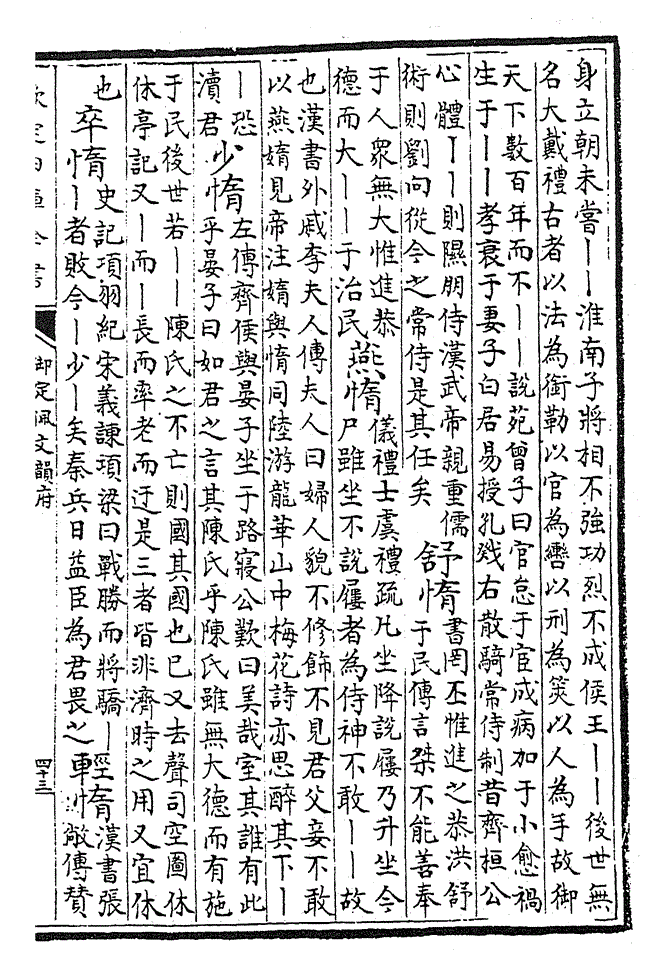 身立朝未嘗——淮南子將相不強功烈不成侯王——後世無
名大戴禮古者以法為銜勒以官為轡以刑為筴以人為手故御
天下數百年而不——說苑曾子曰官怠于宦成病加于小愈禍
生于——孝衰于妻子白居易授孔戣右散騎常侍制昔齊桓公
心體——則隰朋侍漢武帝親重儒
術則劉向從今之常侍是其任矣
舒惰
書罔丕惟進之恭洪舒
于民傳言桀不能善奉
于人衆無大惟進恭
德而大——于治民
燕惰
儀禮士虞禮疏凡坐降說屨乃升坐今
尸雖坐不說屨者為侍神不敢——故
也漢書外戚李夫人傳夫人曰婦人貌不修飾不見君父妾不敢
以燕媠見帝注媠與惰同陸游龍華山中梅花詩亦思醉其下—
—恐
瀆君
少惰
左傳齊侯與晏子坐于路寢公歎曰美哉室其誰有此
乎晏子曰如君之言其陳氏乎陳氏雖無大德而有施
于民後世若——陳氏之不亡則國其國也已又去聲司空圖休
休亭記又—而—長而率老而迂是三者皆非濟時之用又宜休
也
卒惰
史記項羽紀宋義諫項梁曰戰勝而將驕—
—者敗今—少—矣秦兵日益臣為君畏之
輕惰
漢書張
敞傳贊
欽定四庫全書
御定佩文韻府
四十三